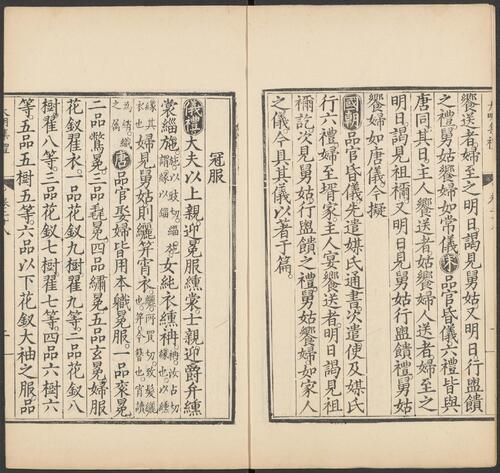 饗送者婦至之明日見舅姑又明日行盥饋
之禮舅姑饗婦如常儀宋品官昏儀六禮皆與
唐同其日主人饗送者姑饗婦人送者婦至之
明日謁見祖禰又明日見舅姑行盥饋禮舅姑
饗婦如唐儀今擬
國朝品官昏儀先遣媒氏通書次遣使及媒氏
行六禮婦至壻家主人宴饗送者明日謁見祖
禰訖次見舅姑行盥饋之禮舅姑饗婦如家人
之儀今具其儀以著于篇
冠服
儀禮大夫以上親迎冕服纁裳士親迎爵弁纁
裳緇袘袘以豉切緇袘謂緣以緇女純衣纁袡袡汝占切緣也以纁
緣其衣也婦見舅姑則纚笄宵衣
唐品官娶婦皆用本職冕服一品衮冕
二品鷩冕三品毳冕四品繡冕五品玄冕婦服
花釵翟衣一品花釵九樹翟九等二品花釵八
樹翟八等三品花釵七樹翟七等四品六樹六
等五品五樹五等六品以下花釵大袖之服品